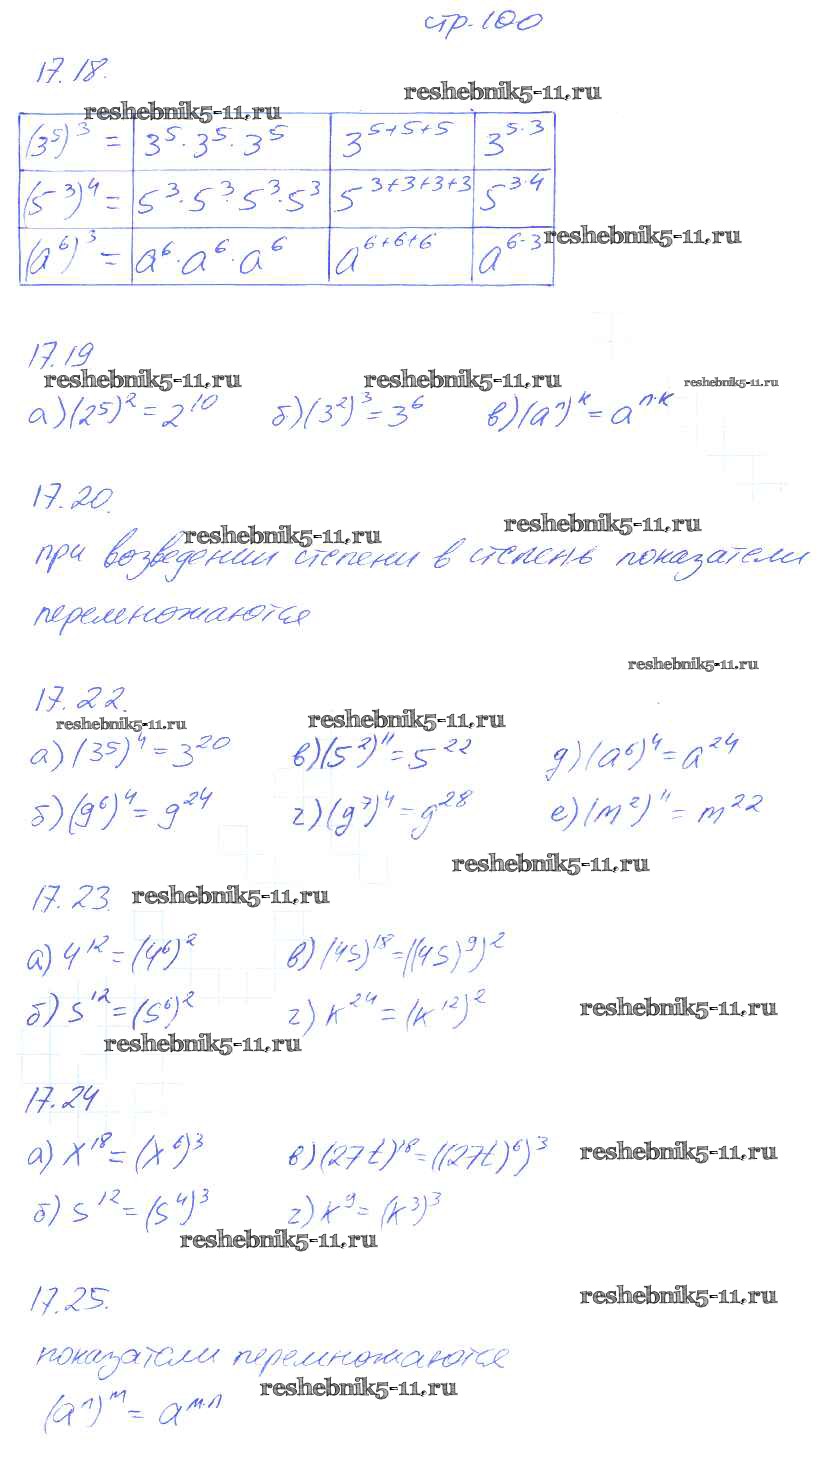 стр. 100
17.18.
reshebnik5-11.ru
reshebnik5-11.ru
(3⁵)³ = 3⁵·3⁵·3⁵ 3⁵⁺⁵⁺⁵ 3⁵·³
(5³)⁴ = 5³·5³·5³·5³ 5³⁺³⁺³⁺³ 5³·⁴
(a⁶)³ = a⁶·a⁶·a⁶ a⁶⁺⁶⁺⁶ a⁶·³
reshebnik5-11.ru
17.19
reshebnik5-11.ru reshebnik5-11.ru reshebnik5-11.ru
а) (2⁵)² = 2¹⁰ б) (3²)³ = 3⁶ в) (aⁿ)ᵏ = aⁿ·ᵏ
17.20.
reshebnik5-11.ru reshebnik5-11.ru
при возведении степени в степень показатели
перемножаются
reshebnik5-11.ru
17.22.
reshebnik5-11.ru reshebnik5-11.ru
а) (3⁵)⁴ = 3²⁰ в) (5²)¹¹ = 5²² д) (a⁶)⁴ = a²⁴
б) (g⁶)⁴ = g²⁴ г) (g⁷)⁴ = g²⁸ е) (m²)¹¹ = m²²
reshebnik5-11.ru
17.23. reshebnik5-11.ru
а) 4¹² = (4⁶)² в) (4s)¹⁸ = ((4s)⁹)²
б) s¹² = (s⁶)² г) k²⁴ = (k¹²)²
reshebnik5-11.ru
reshebnik5-11.ru
17.24
а) x¹⁸ = (x⁶)³ в) (27t)¹⁸ = ((27t)⁶)³
reshebnik5-11.ru
б) s¹² = (s⁴)³ г) k⁹ = (k³)³
reshebnik5-11.ru
17.25.
reshebnik5-11.ru
показатели перемножаются
reshebnik5-11.ru
(aⁿ)ᵐ = aᵐ·ⁿ